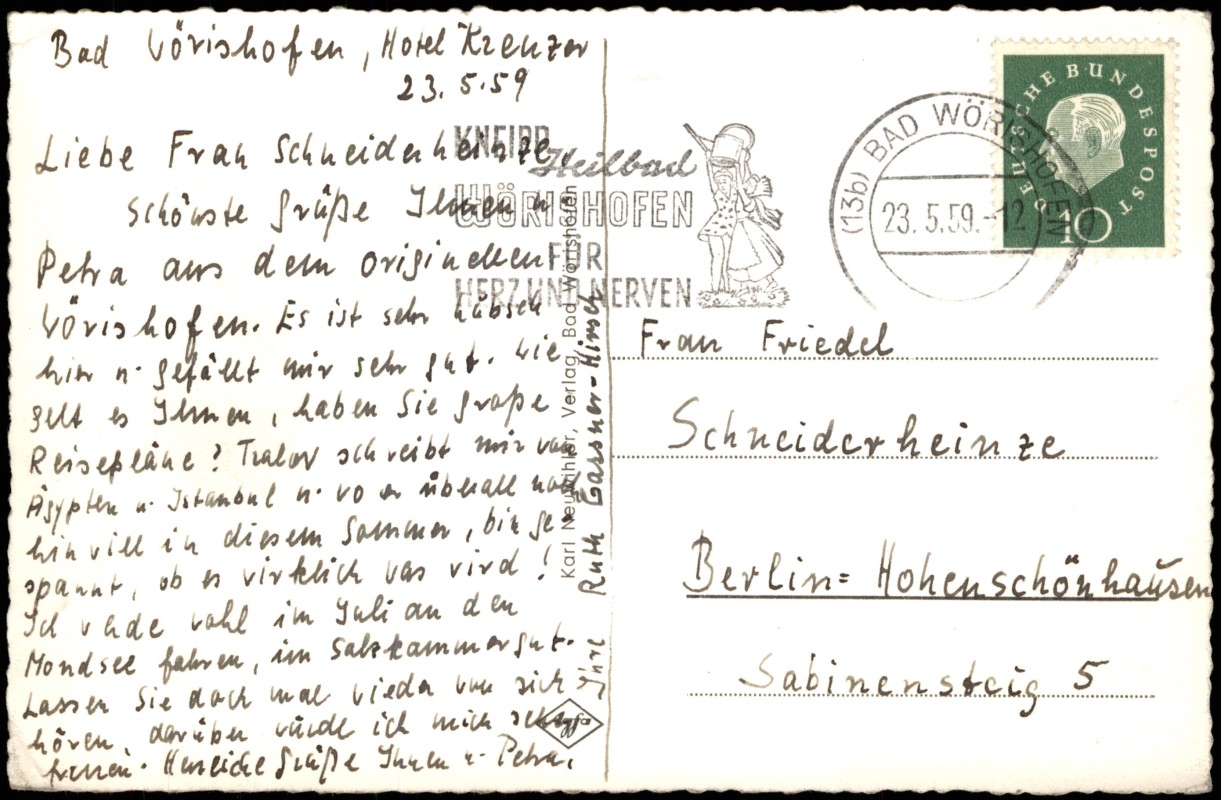 Bad Wörishofen, Hotel Kreuzer
23.5.59
Liebe Frau Schneiderheinze,
schönste Grüße Ihnen u.
Petra aus dem originellen
Wörishofen. Es ist sehr hübsch
hier u. gefällt mir sehr gut. Wie
geht es Ihnen, haben Sie große
Reisepläne? schreibt mir von
Ägypten u. Istanbul u. wo er überall noch
hin will in diesem Sommer, bin ge-
spannt, ob es wirklich was wird!
Ich werde wohl im Juli an den
Mondsee fahren, im Salzkammergut.
Lassen Sie doch mal wieder von sich
hören, darüber würde ich mich sehr
freuen. Herzliche Grüße Ihnen u. Petra,
Ihre Ruth Gassner-Hirsch
Karl Neuwihler, Verlag, Bad Wörishofen
Agfa
KNEIPP
Heilbad
WÖRISHOFEN
FÜR
HERZ UND NERVEN
(13b) BAD WÖRISHOFEN
23.5.59.-12
DEUTSCHE BUNDESPOST
10
Frau Friedel
Schneiderheinze
Berlin=Hohenschönhausen
Sabinensteig 5